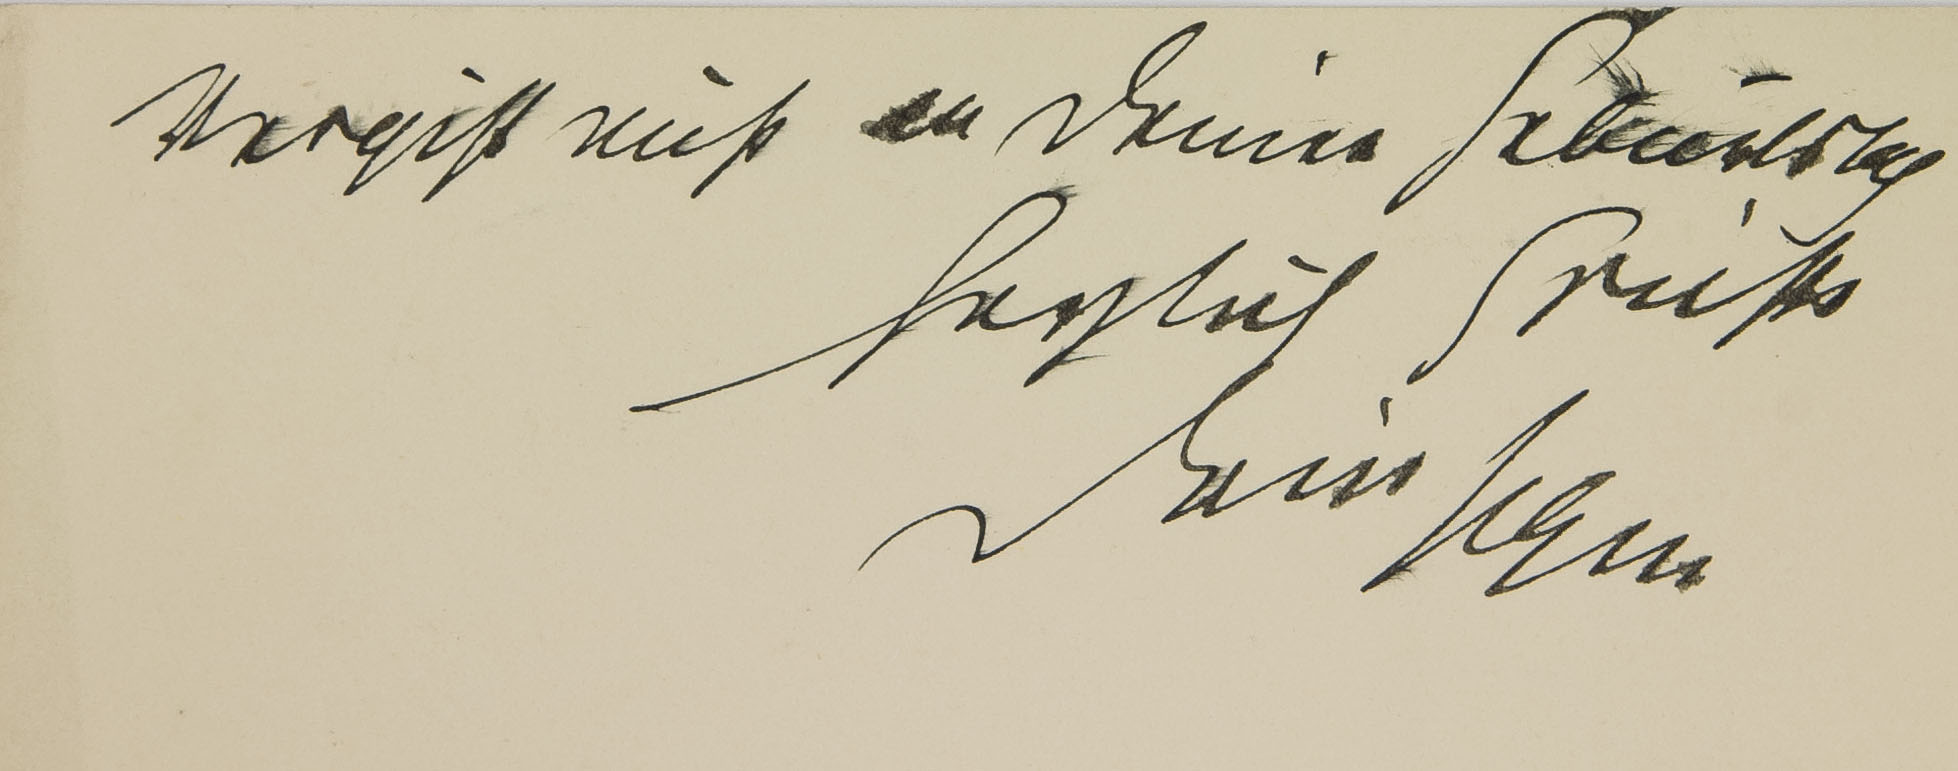 Vergiß nicht an Deinen Geburtstag
Herzlich Grüße
Dein